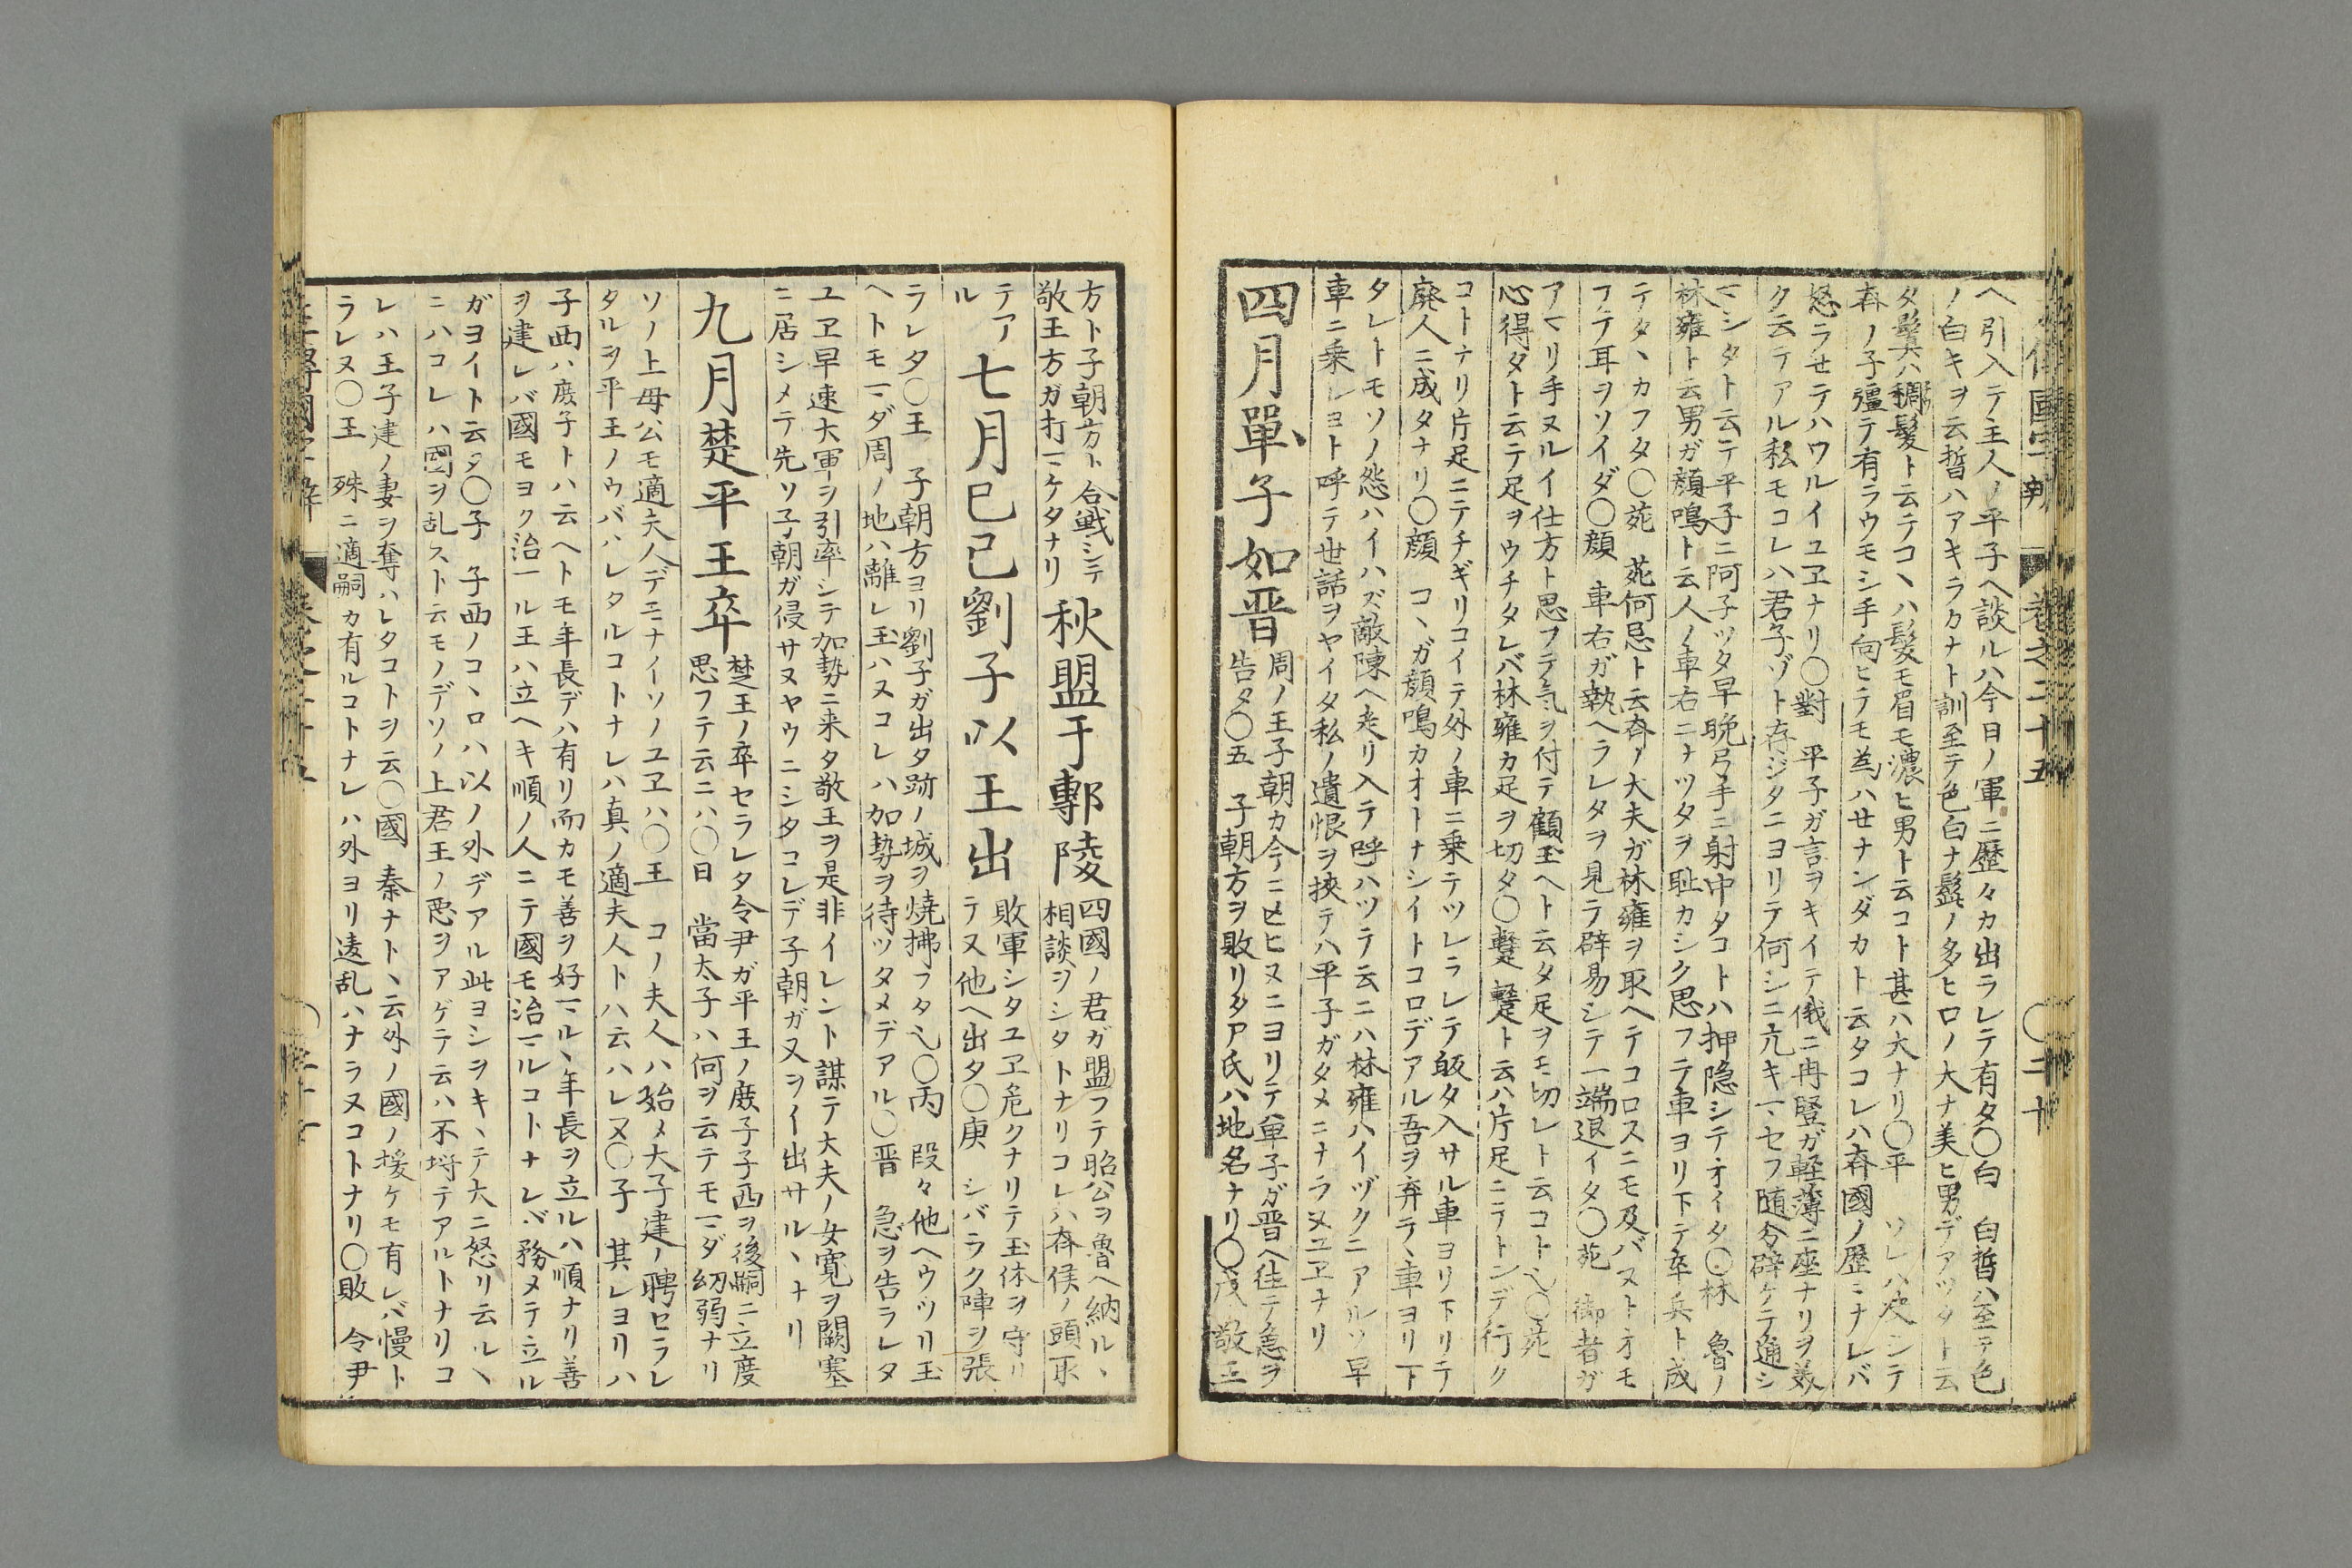 ヘ引入テ主人ノ平子ヘ談ルハ今日ノ軍ニ歴々カ出ラレテ有タ〇白　白晳ハ至テ色
ノ白キヲ云晳ハアキラカナト訓至テ色白ナ鬚ノ多ヒロノ大ナ美ヒ男デアツタト云
タ鬒ハ稠髪ト云テコヽハ髪モ眉モ濃ヒ男ト云コト甚ハ大ナリ〇平　ソレハ決シテ
斉ノ子彊テ有ラウモシ手向ヒテモ為ハセナンダカト云タコレハ斉國ノ歴ミナレバ
怒ラせテハワルイユヱナリ〇對　平子ガ言ヲキイテ俄ニ冉豎ガ軽薄ニ座ナリヲ美
ク云テアル私モコレハ君子ゾト存ジタニヨリテ何シニ亢キマセフ随分辟ケテ通シ
マシタト云テ平子ニ阿子ツタ早晩弓手ニ射中タコトハ押隠シテオイタ〇林　魯ノ
林雍ト云男ガ顔鳴ト云人ノ車右ニナツタヲ耻カシク思フテ車ヨリ下テ卒兵ト成
テタヽカフタ〇苑　苑何忌ト云斉ノ大夫ガ林雍ヲ取ヘテコロスニモ及バヌトオモ
フテ耳ヲソイダ〇顔　車右ガ執ヘラレタヲ見テ辟易シテ一端退イタ〇苑　御者ガ
アマリ手ヌルイ仕方ト思フテ気ヲ付テ顧玉ヘト云タ足ヲモ切レト云コト也〇苑
心得タト云テ足ヲウチタレバ林雍カ足ヲ切タ〇鑋　鑋ト云ハ片足ニテトンデ行ク
コトナリ片足ニテチギリコイテ外ノ車ニ乗テツレラレテ皈タ入サル車ヨリ下リテ
廃人ニ成タナリ〇顔　コヽガ顔鳴カオトナシイトコロデアル吾ヲ弃テ、車ヨリ下
タレトモソノ怨ハイハズ敵陳ヘ走リ入テ呼ハツテ云ニハ林雍ハイヅクニアルソ早
車ニ乗レヨト呼テ世話ヲヤイタ私ノ遺恨ヲ挾テハ平子ガタメニナラヌユヱナリ
四月單子如晋
周ノ王子朝カ今ニ亡ヒヌニヨリテ單子ガ晋ヘ往テ急ヲ
告タ〇五　子朝方ヲ敗リタ尸氏ハ地名ナリ〇戊　敬王
方ト子朝方ト合戦シテ
敬王方ガ打マケタナリ
秋盟于鄟陵
四國ノ君ガ盟フテ昭公ヲ魯ヘ納ルヽ
相談ヲシタトナリコレハ斉侯ノ頭取
テア
ル
七月己巳劉子以王出
敗軍シタユヱ危クナリテ玉体ヲ守リ
テヌ他ヘ出タ〇庚　シバラク陣ヲ張
ラレタ〇王　子朝方ヨリ劉子ガ出タ跡ノ城ヲ焼拂フタ也〇丙　段々他ヘウツリ玉
ヘトモマダ周ノ地ハ離レ玉ハヌコレハ加勢ヲ待ツタメデアル〇晋　急ヲ告ラレタ
ユヱ早速大軍ヲ引率シテ加勢ニ来タ敬王ヲ是非イレント謀テ大夫ノ女寛ヲ闕塞
ニ居シメテ先ソ子朝ガ侵サヌヤウニシタコレデ子朝ガ又ヲイ出サルヽナリ
九月楚平王卒
楚王ノ卒セラレタ令尹ガ平王ノ庶子子西ヲ後嗣ニ立度
思フテ云ニハ〇日　當太子ハ何ヲ云テモマダ幼弱ナリ
ソノ上母公モ適夫人デニナイソノユヱハ〇王　コノ夫人ハ始メ大子建ノ聘セラレ
タルヲ平王ノウバハレタルコトナレハ真ノ適夫人トハ云ハレヌ〇子　其レヨリハ
子西ハ庶子トハ云ヘトモ年長デハ有リ而カモ善ヲ好マルヽ年長ヲ立ルハ順ナリ善
ヲ建レバ國モヨク治マル王ハ立ヘキ順ノ人ニテ國モ治マルコトナレバ務メテ立ル
ガヨイト云タ〇子　子西ノコヽロハ以ノ外デアル此ヨシヲキヽテ大ニ怒リ云ルヽ
ニハコレハ國ヲ乱ストト云モノデソノ上君王ノ悪ヲアゲテ云ハ不埒テアルトナリコ
レハ王子建ノ妻ヲ奪ハレタコトヲ云〇國　秦ナトヽ云外ノ國ノ援ケモ有レバ慢ト
ラレヌ〇王　殊ニ適嗣カ有ルコトナレハ外ヨリ逺乱ハナラヌコトナリ〇敗　令尹